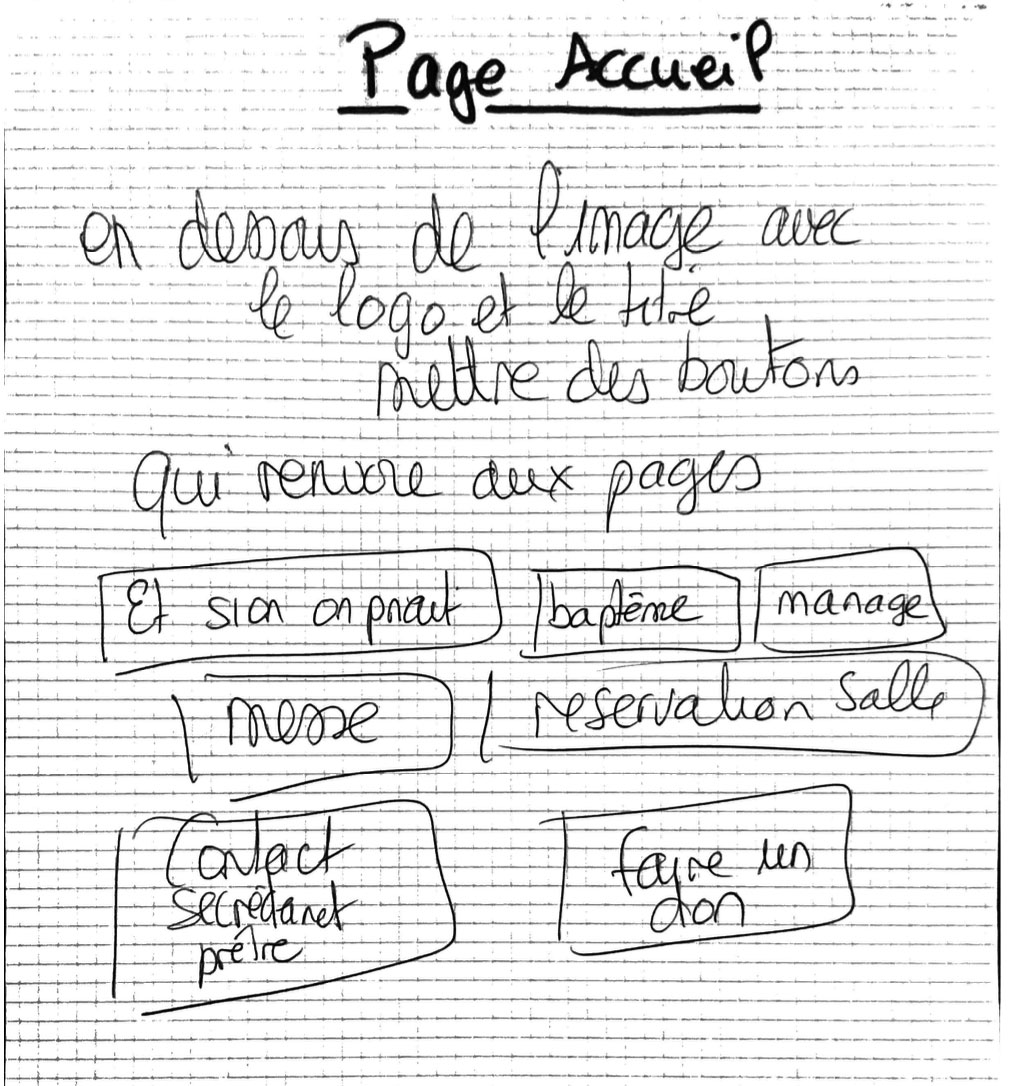 Page Accueil
en dessous de l'image avec
le logo et le titre
mettre des boutons
qui renvoie aux pages
Et si on on priait
baptême
mariage
messe
réservation salle
Contact
secrétariat
prêtre
faire un
don